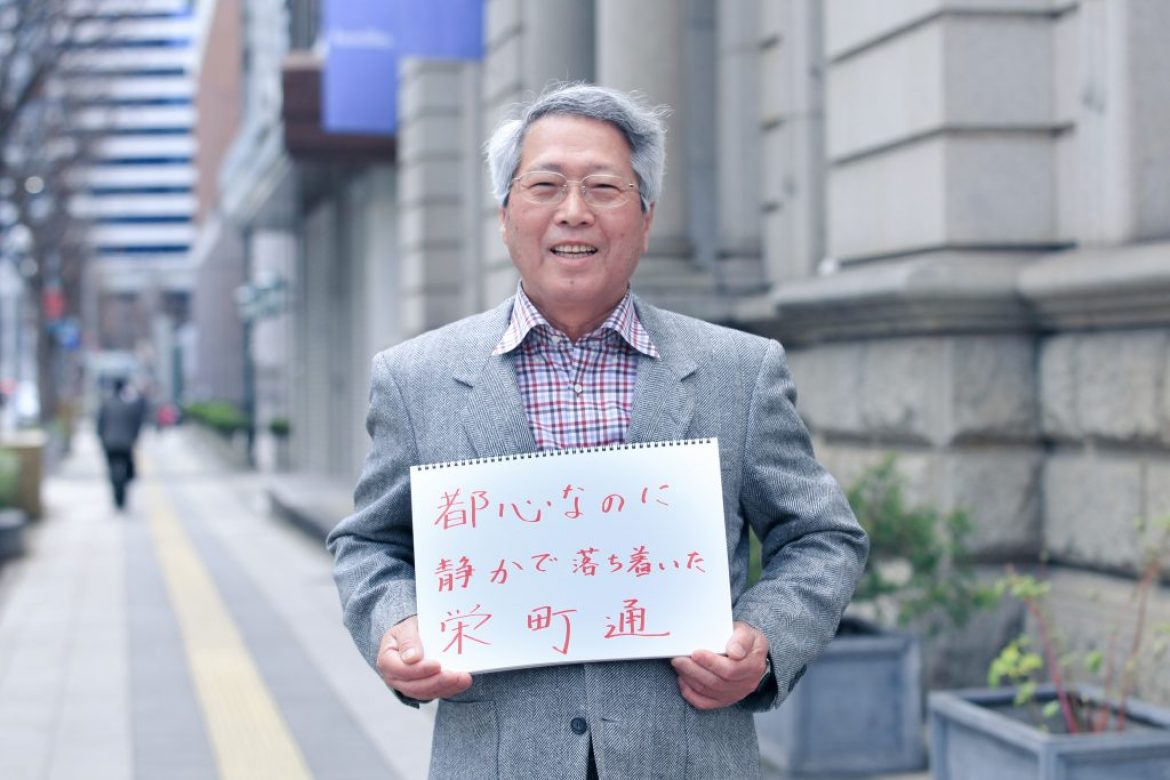 都心なのに
静かで落ち着いた
栄町通